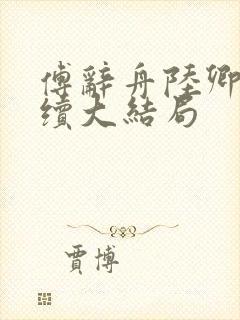 傅辭舟陸卿
續大結局
賈博